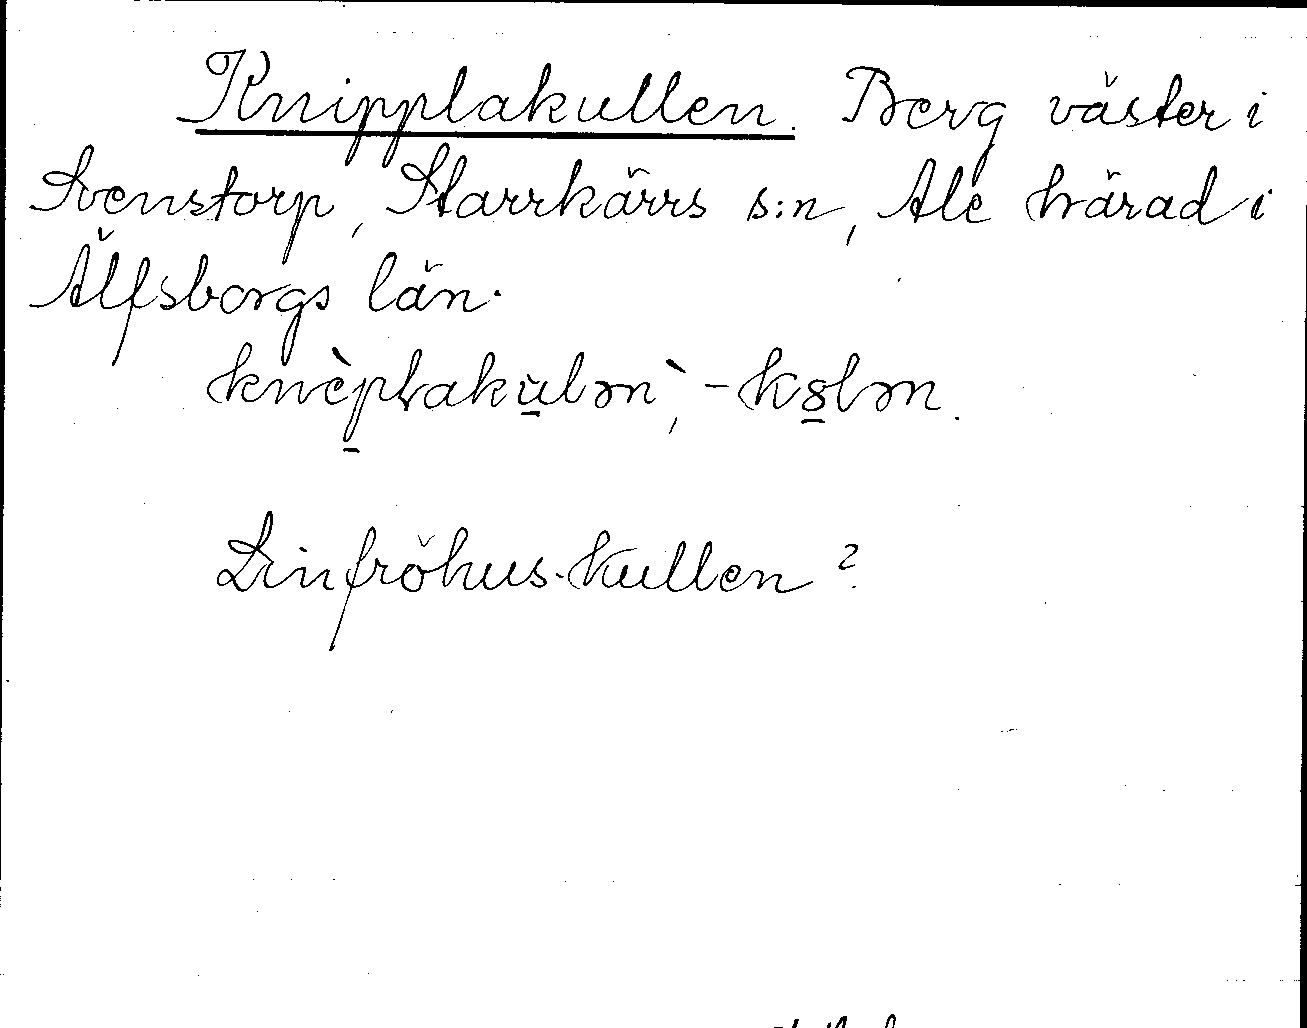 Knipplakullen. Berg väster i
Svenstorp, Starrkärrs s:n, Ale härad i
Älfsborgs län.
knèplakulən, -k8lən.
Linfröhus-kullen?